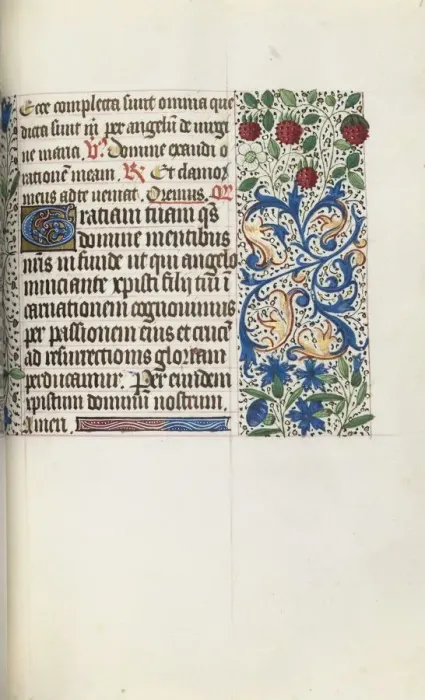 Ecce completa sunt omnia que
dicta sunt p angelū de virgi
ne maria. V̄. Domine exaudi o
rationē meam. R̄ Et clamor
meus ad te veniat. Oremus. Or̄
Gratiam tuam qs̄
domine mentibus
nr̄is infunde ut qui angelo
nunciante xpisti filij tui ī
carnationem cognouimus
per passionem eius et crucē
ad resurrectionis gloriam
perducamur. Per eundem
xpistum dominū nostrum
Amen.